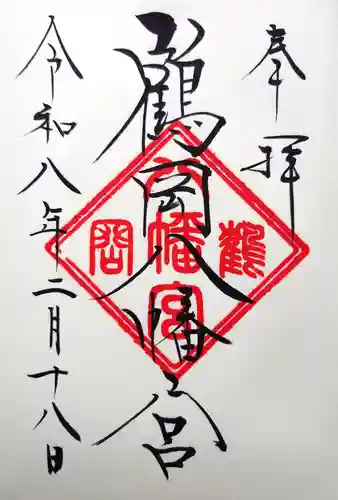 奉拝
鶴岡八幡宮
八幡宮
鶴
岡
令和八年二月十八日